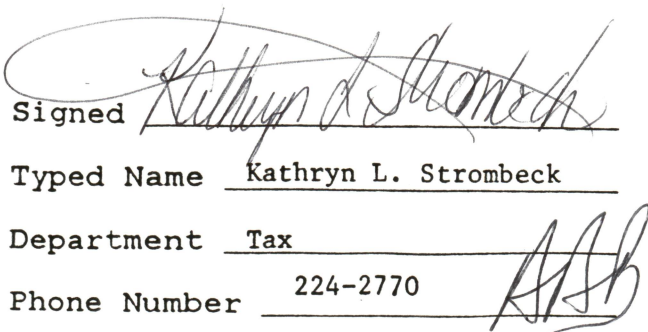 Signed Kathryn L Strombeck
Typed Name Kathryn L. Strombeck
Department Tax
Phone Number 224-2770